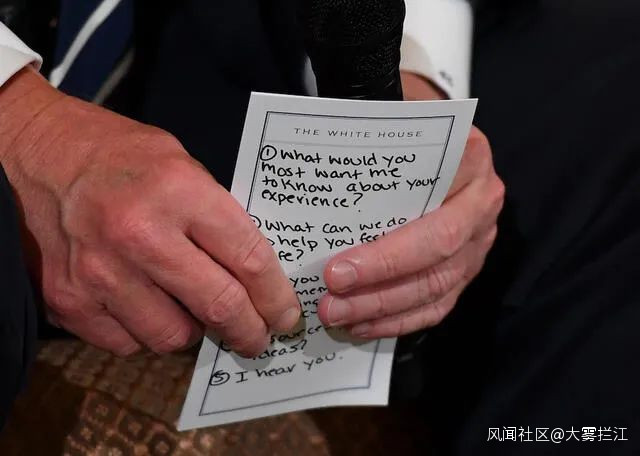 THE WHITE HOUSE
① What would you
most want me
to know about your
experience?
What can we do
help you
you
ideas?
⑤ I hear you.
风闻社区@大雾拦江